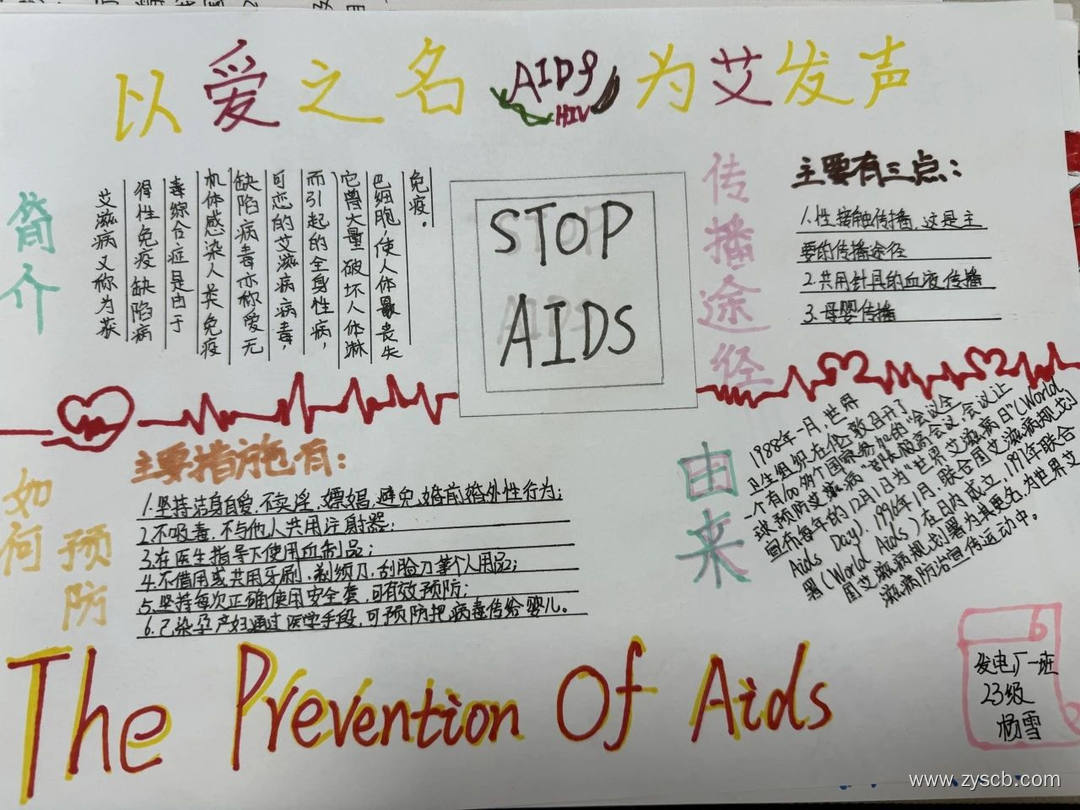 以爱之名 AIDS HIV 为艾发声
简介
艾滋病又称为获
得性免疫缺陷病
毒综合症是由于
机体感染人类免疫
缺陷病毒亦称爱无
可恋的艾滋病病毒,
而引起的全身性病,
它兽大量破坏人体淋
巴细胞,使人体最丧失
免疫。
STOP
AIDS
传播途径
主要有三点:
1.性接触传播,这是主
要的传播途径
2.共用针具的血液传播
3.母婴传播
如何预防
主要措施有:
1.坚持洁身自爱,不卖淫、嫖娼,避免婚前婚外性行为;
2.不吸毒,不与他人共用注射器;
3.在医生指导下使用血制品;
4.不借用或共用牙刷,剃须刀,刮脸刀等个人用品;
5.坚持每次正确使用安全套,可有效预防;
6.已染孕产妇通过医学手段,可预防把病毒传给婴儿。
由来
1988年一月,世界
卫生组织在伦敦召开了
一个有100多个国家参加的“会议全
球预防艾滋病”部长级高会议,会议让
宣布每年的12月1日为“世界艾滋病日”(World
Aids Day)。1996年1月,联合国艾滋病规划
署(World Aids)在日内成立,1997年联合
国艾滋病规划署为其更名,为世界艾
滋病防治宣传运动中。
The Prevention Of Aids
发电厂一班
23级
杨雪
www.zyscb.com